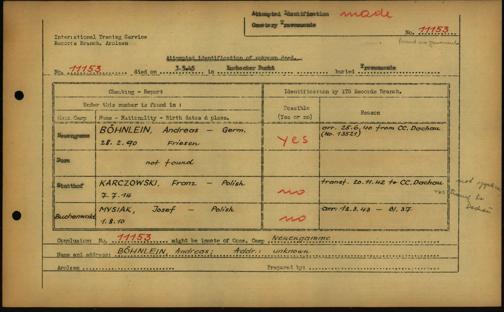 Attempted Identification made
Cemetery Travemuende
No. 11153
International Tracing Service
Records Branch, Arolsen
Attempted identification of unknown dead.
No. 11153 died on 3.5.45 in buried
Checking - Report
Identification by ITS Records Branch.
Under this number is found in:
Possible
(Yes or no)
Reason
Conc. Camp Name - Nationality - Birth dates & place.
Neuengamme BÖHNLEIN, Andreas - Germ.
28.2.90 Friesen
yes
arr. 28.6.40 from CC. Dachau
(No. 13521)
not found
Stutthof KARCZOWSKI, Franz - Polish
7.7.14
no
transf. 20.11.42 to CC. Dachau
Buchenwald MYSIAK, Josef - Polish
1.8.10
no
arr. 12.3.43 - Bl. 37
Conclusion No. 11153 might be inmate of Conc. Camp Neuengamme
Name and address: BÖHNLEIN Andreas, Addr.: unknown
Arolsen Prepared by: